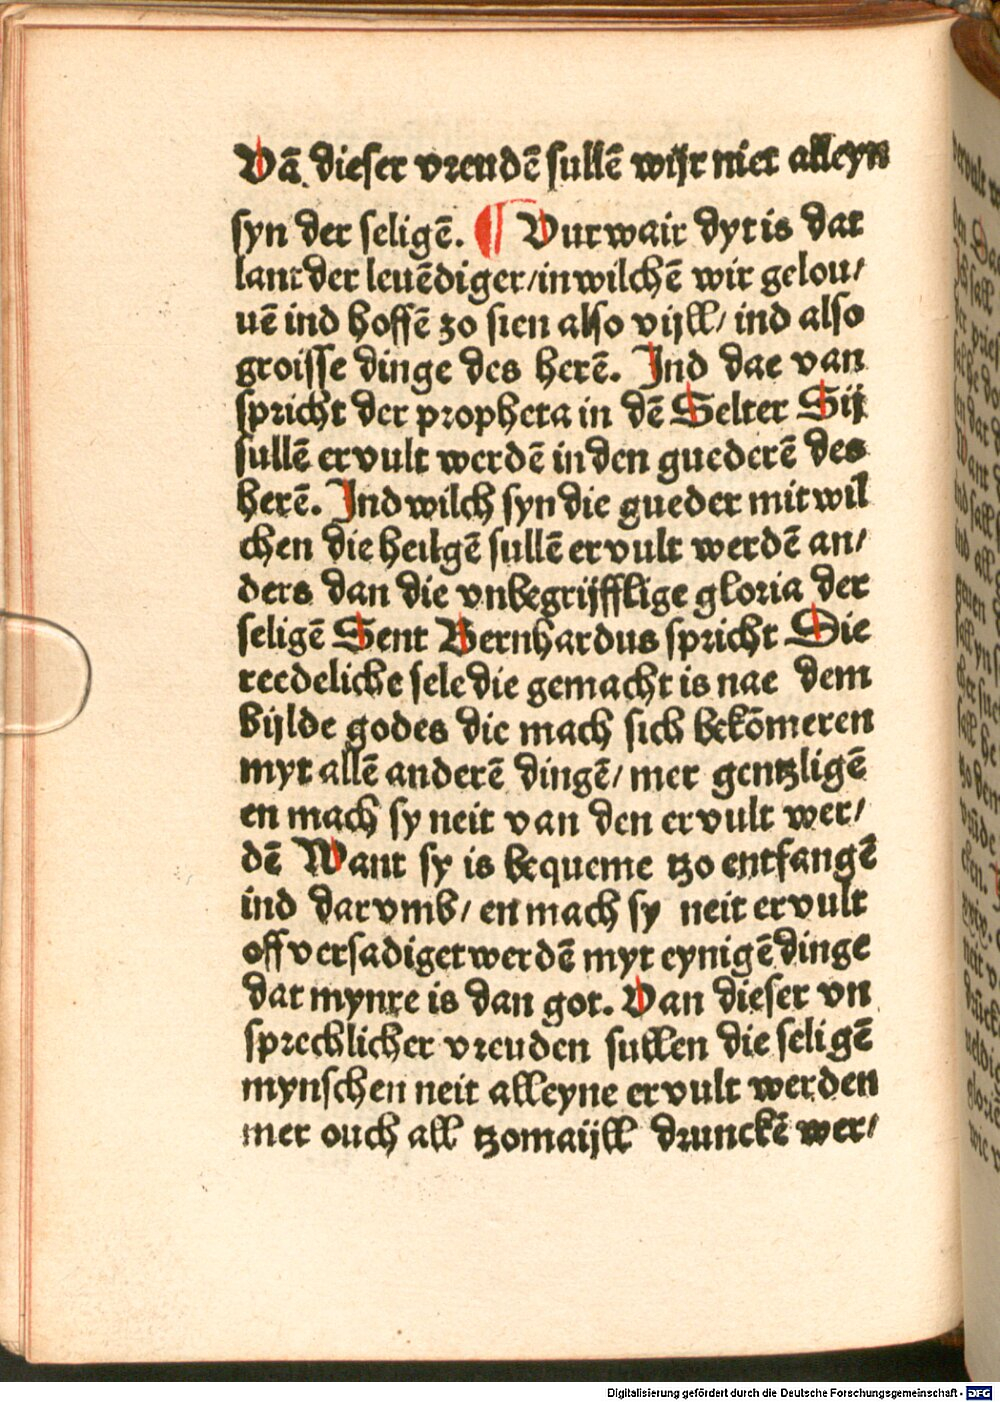 Vā dieser vreudē sullē wijr niet alleyn
syn der seligē. ¶ Vurwair dyt is dat
lant der leuēdiger/in wilchē wir gelou/
uē ind hoffē zo sien also vijll/ ind also
groisse dinge des herē. Ind dae van
spricht der propheta in dē Selter Sij
sullē ervult werdē in den guederē des
herē. Ind wilch syn die gueder mit wil
chen die heilgē sullē ervult werdē an/
ders dan die vnbegrijfflige gloria der
seligē Sent Bernhardus spricht Die
reedeliche sele die gemacht is nae dem
bijlde godes die mach sich bekōmeren
myt allē anderē dingē/ mer gentzligē
en mach sy neit van den ervult wer/
dē Want sy is bequeme tzo entfangē
ind darvmb/ en mach sy neit ervult
off versadiget werdē myt eynigē dinge
dat mynre is dan got. Van dieser vn
sprechlicher vreuden sullen die seligē
mynschen neit alleyne ervult werden
mer ouch all tzomaijll drunckē wer/
Digitalisierung gefördert durch die Deutsche Forschungsgemeinschaft - DFG